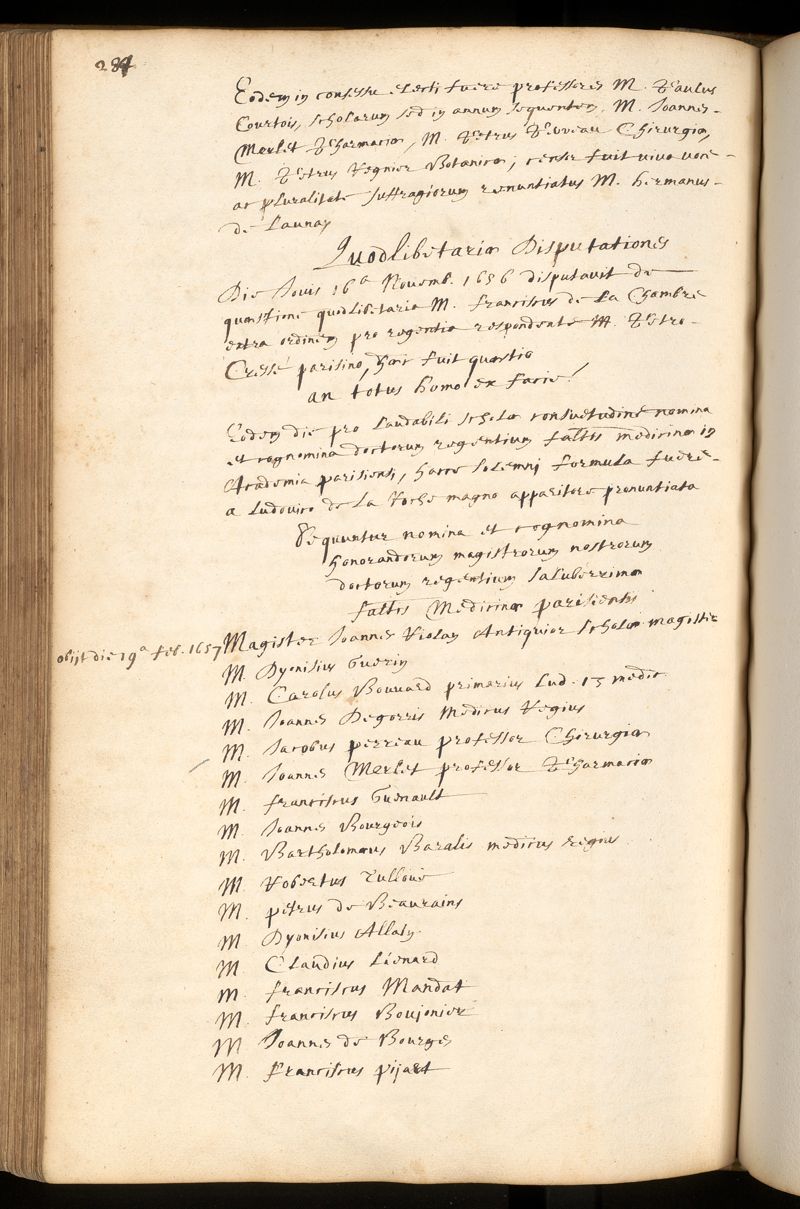 284
Eodem in consessu electi fuere professores M. Paulus
Courtois, scholarum sed in annum sequentem, M. Joannes
Merlet Pharmaciæ, M. Petrus Perreau Chirurgiæ,
M. Petrus Regnier Botanicæ; censor fuit viva voce
ac pluralitate suffragiorum renuntiatus M. Hermanus
de Launay
Quodlibetariæ Disputationes
Die Jovis 16a Novemb. 1656 disputavit de
quæstione quodlibetaria M. Franciscus de La Chambre
extra ordinem pro regentia respondente M. Petro
Cressé parisino, hæc fuit quæstio
an totus homo ex facie?
Eodem die pro laudabili scholæ consuetudine nomina
et cognomina doctorum regentium faltis medicinæ in
Academia parisiensi, hacce solemni formula fuere
a Ludovico de La Roche magno apparitore pronuntiata
Sequuntur nomina et cognomina
honorandorum magistrorum nostrorum
doctorum regentium saluberrimæ
faltis Medicinæ parisiensis
obijt die 19a feb. 1657 Magister Joannes Riolan Antiquior scholæ magister
M. Dyonisius Guerin
M. Carolus Bouvard primarius Lud. 13 medic
M. Joannes Degorris Medicus Regius
M. Jacobus perreau professor Chirurgiæ
M. Joannes Merlet professor Pharmaciæ
M. franciscus Guenault
M. Joannes Bourgeois
M. Bartholomæus Baralis medicus regius
M. Robertus Tulloue
M. petrus de Beaurains
M. Dyonisius Allain
M. Claudius Liénard
M. franciscus Mandat
M. franciscus Boujonier
M. Joannes de Bourges
M. franciscus pijart